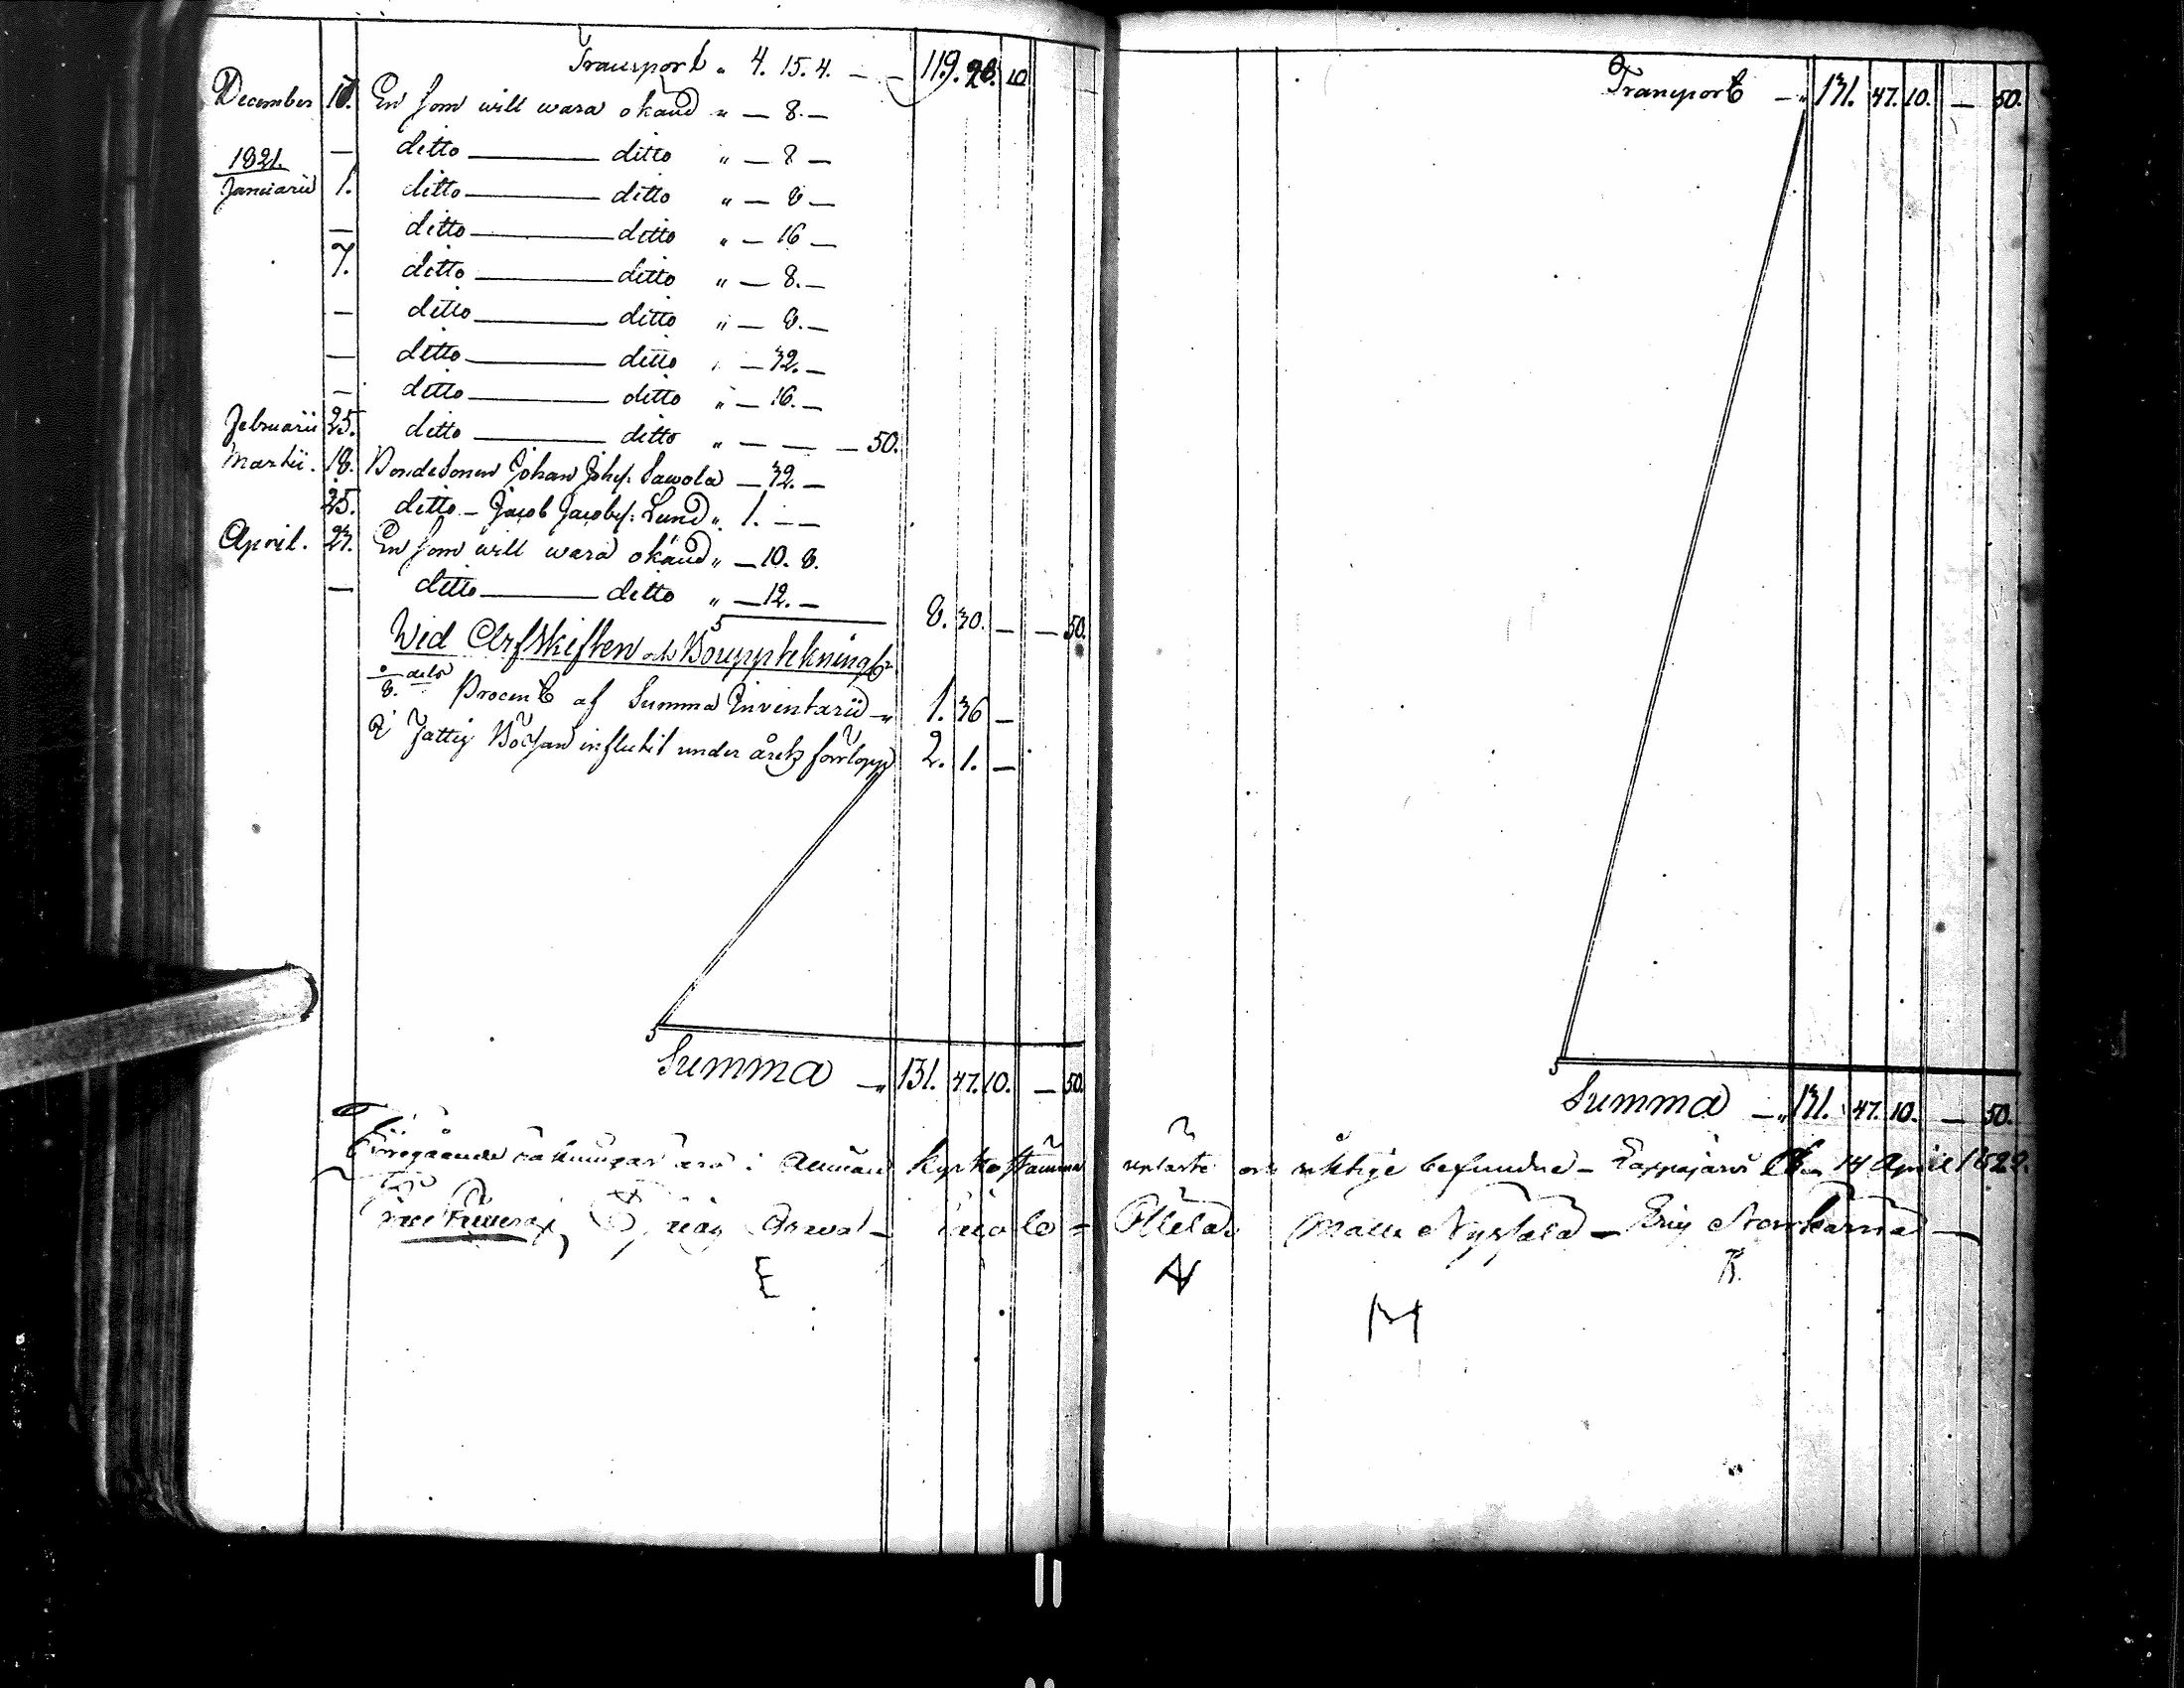 Transport „ 4. 15. 4. — — 119. 28. 10
December 10. En som will wara okänd „ — 8. —
— ditto — ditto „ — 8 —
1821.
Januarii 1. ditto — ditto „ — 8 —
— ditto — ditto „ — 16 —
7. ditto — ditto „ — 8. —
— ditto — ditto „ — 8. —
— ditto — ditto „ — 32. —
— ditto — ditto „ — 16. —
Februarii 25. ditto — ditto „ — — — 50.
Martii. 18. Bondesonen Johan Johs: Sawola — 32. —
25. ditto — Jacob Jacobs: Lund „ 1. — —
April. 23. En som will wara okänd „ — 10. 8.
— ditto — ditto „ — 12. —
8. 30. — — 50.
Wid Arfskiften och Bouppteckningar
1/8 dels Procent af Summa Inventarii — „ 1. 36 —
I Fattig Bössan influtit under årets förlopp 2. 1. —
Summa — „ 131. 47. 10. — 50.
Transport — „ 131. 47. 10. — 50.
Summa — „ 131. 47. 10. — 50.
Föregående räkningar äro i Allmän Kyrko stämma upläste och riktige befundne — Lappajärvi d. 14 April 1822.
Matts Nyssälä — Eric Storkärnä —
E
N
M